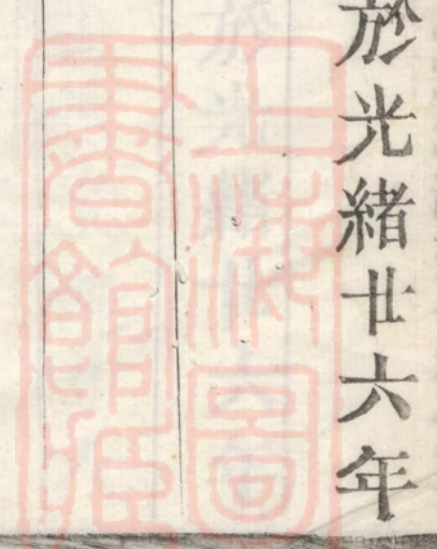 於光緒廿六年
上海圖
書館藏